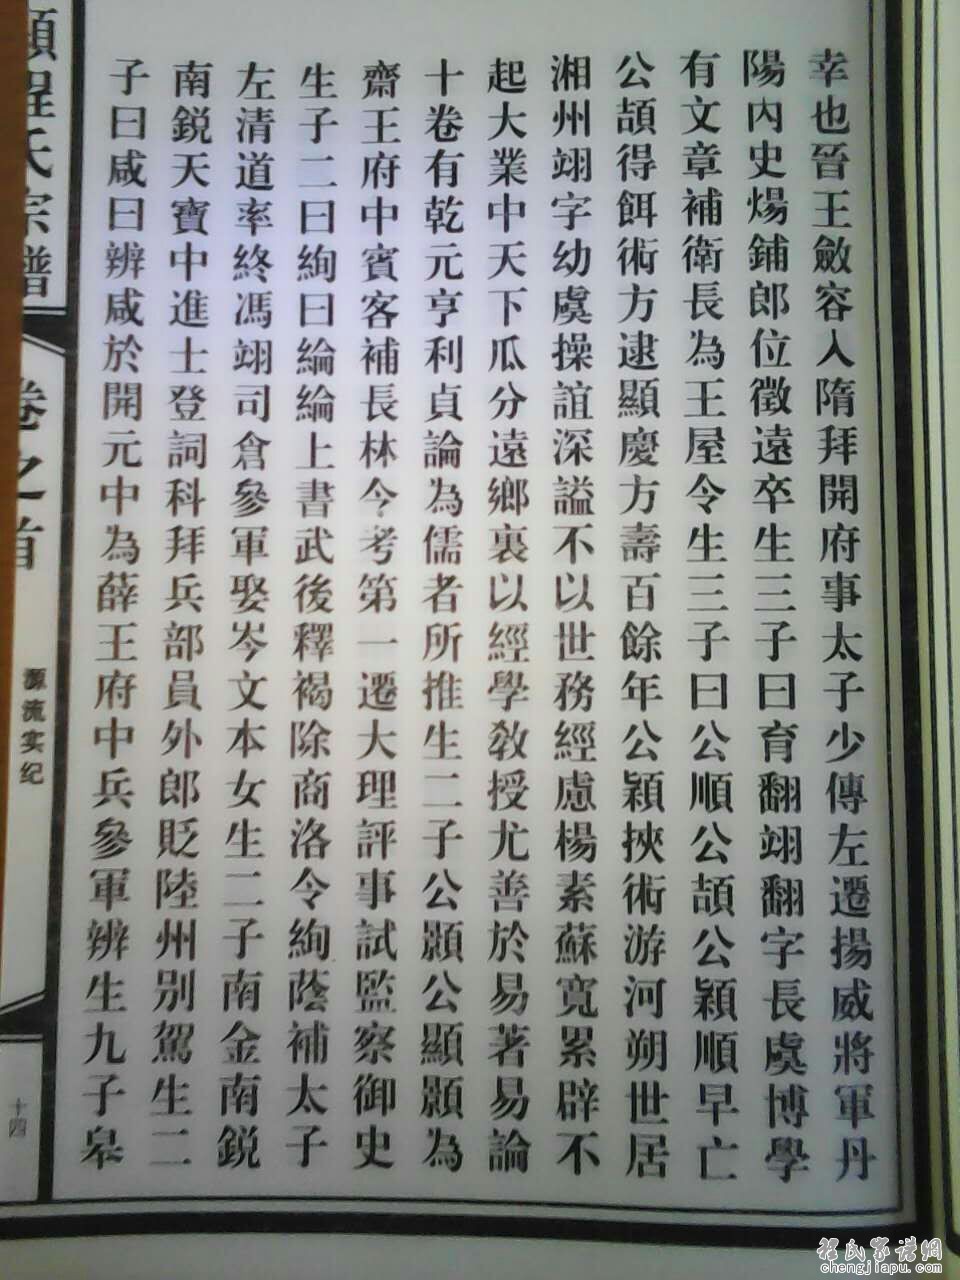 幸也晉王斂容入隋拜開府事太子少傳左遷揚威將軍丹
陽內史煬鋪郎位徵遠卒生三子曰育翻翊翻字長虞博學
有文章補衛長為王屋令生三子曰公順公頡公穎順早亡
公頡得餌術方逮顯慶方壽百餘年公穎挾術游河朔世居
湘州翊字幼虞操誼深謚不以世務經慮楊素蘇寬累辟不
起大業中天下瓜分遠鄉裏以經學教授尤善於易著易論
十卷有乾元亨利貞論為儒者所推生二子公顥公顯顥為
齋王府中賓客補長林令考第一遷大理評事試監察御史
生子二曰絢曰綸綸上書武後釋褐除商洛令絢蔭補太子
左清道率終馮翊司倉參軍娶岑文本女生二子南金南銳
南銳天寶中進士登詞科拜兵部員外郎貶陸州別駕生二
子曰咸曰辨咸於開元中為薛王府中兵參軍辨生九子皋
程氏宗譜
卷之首
源流实纪
十四
程氏家谱網
chengjiapu.com